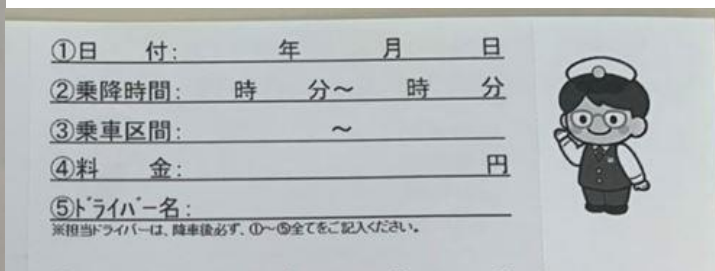 ①日　付:　　　年　　　月　　　日
②乗降時間:　　時　　分～　　時　　分
③乗車区間:　　　　～
④料　金:　　　　　　　　　円
⑤ﾄﾞﾗｲﾊﾞｰ名:
※担当ドライバーは、降車後必ず、①～⑤全てをご記入ください。